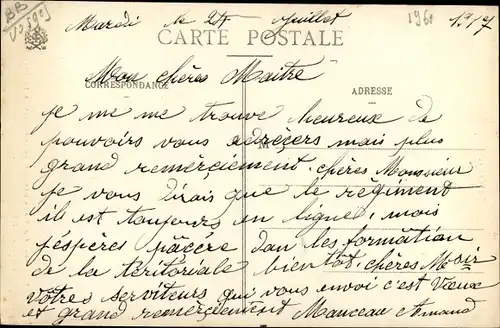 BB
Mardi le 24 Juillet 1917
1960
CARTE POSTALE
Mon chères Maitre
CORRESPONDANCE
ADRESSE
je me me trouve heureux de
pouvoirs vous adrècers mais plus
grand remerciement. chères Monssieur
je vous dirais que le regiment
il est toujours en lignes, mais
j'éspères pâccre dan les formation
de la téritoriale bientôt. chères M
vôtres serviteurs qui vous envoi c'est Vœux
et grand remerciement Manceau Armand